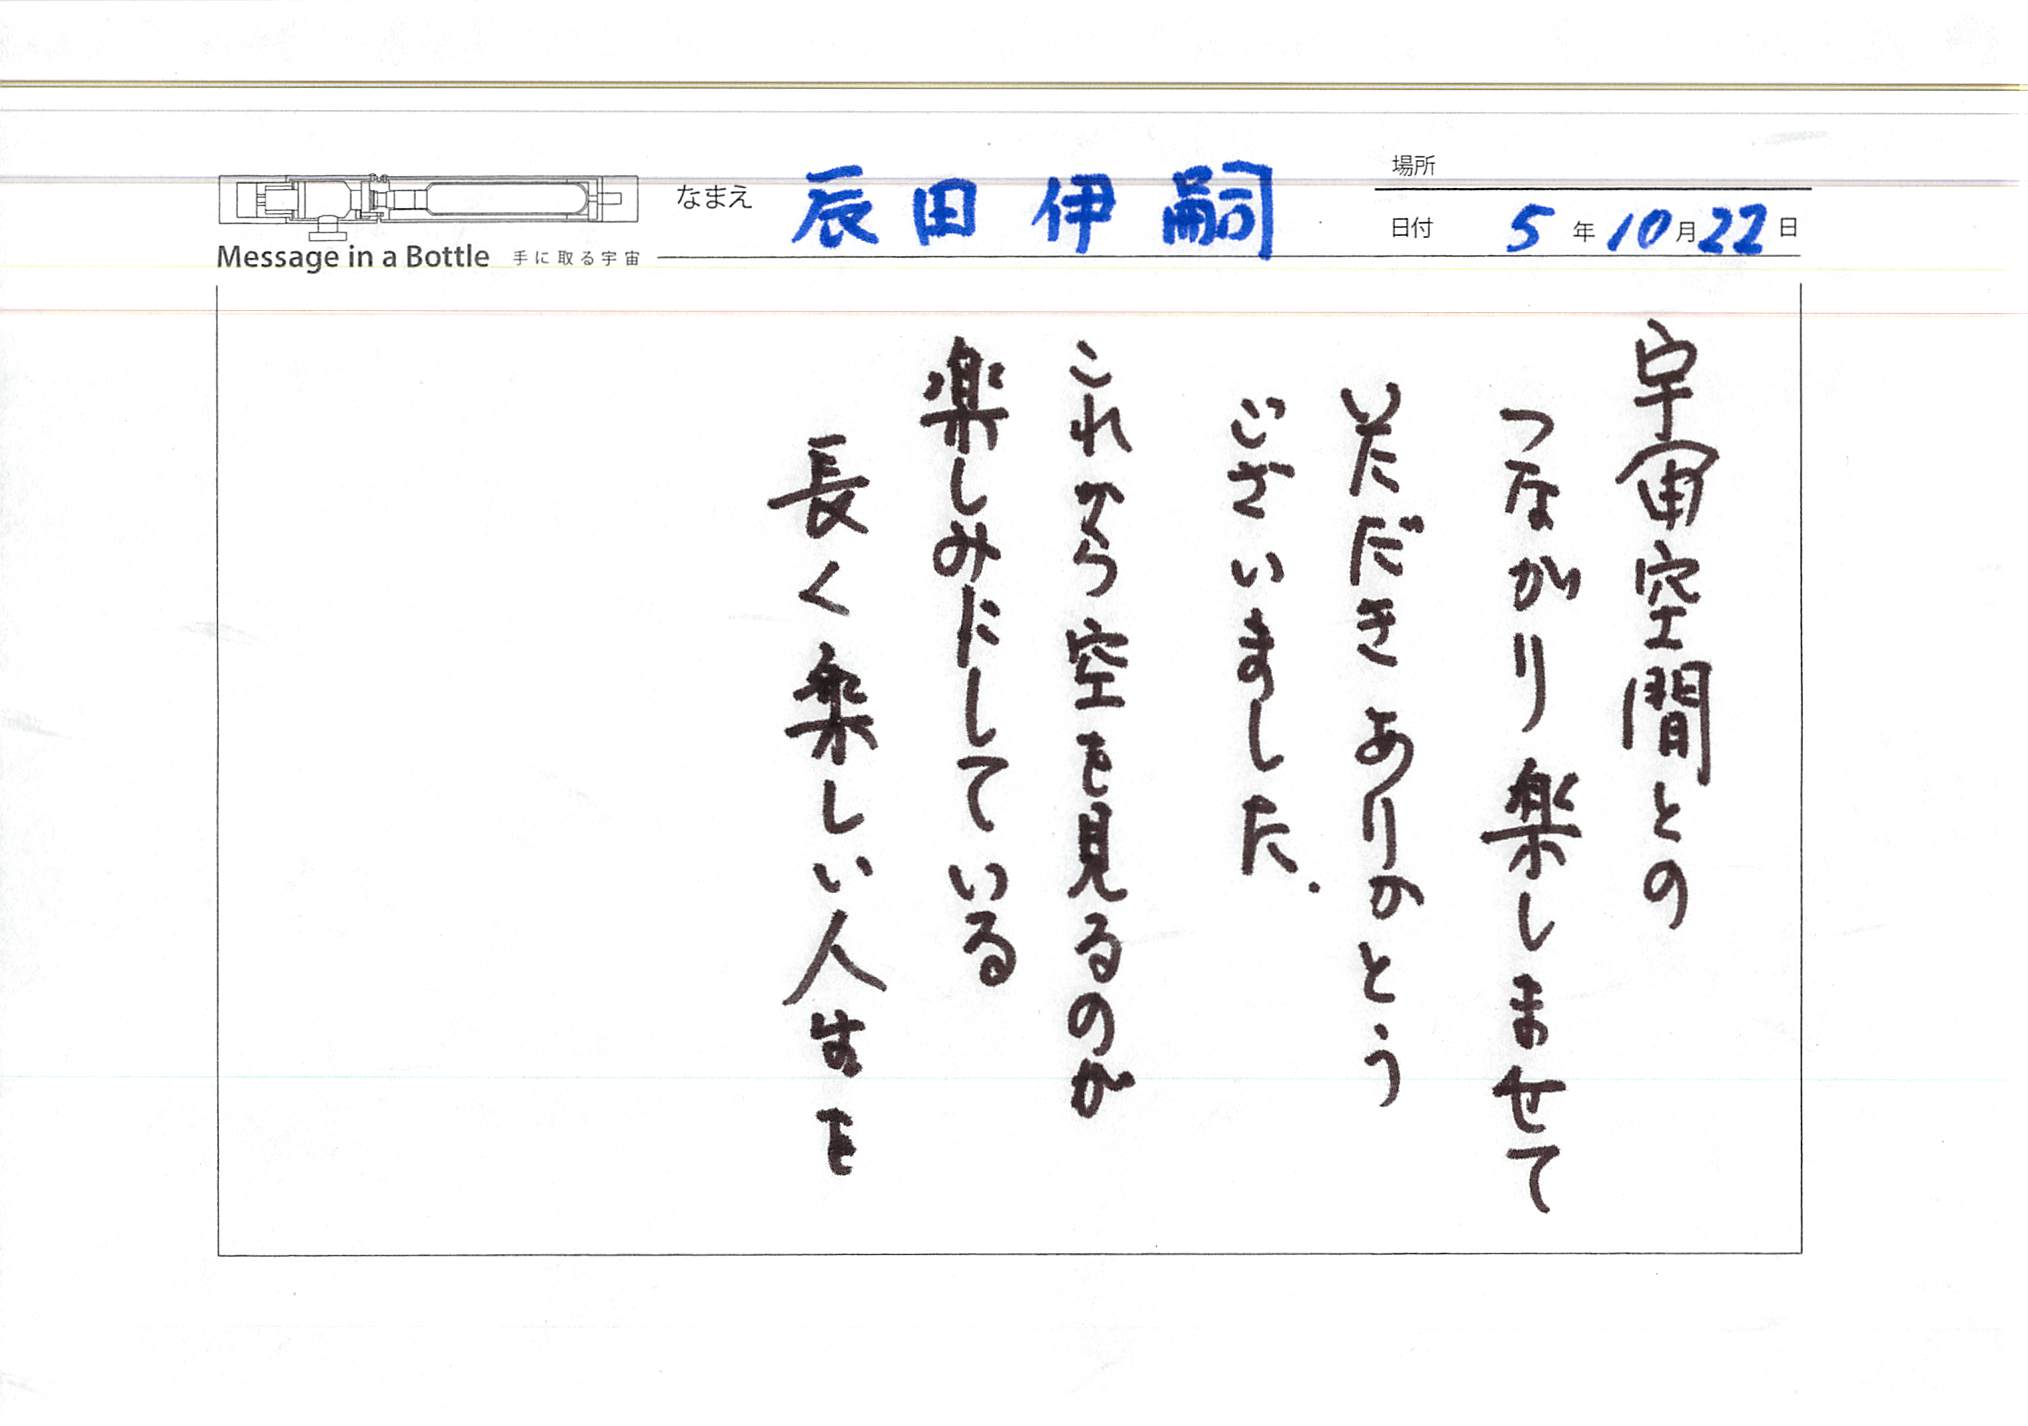 場所
なまえ 辰田 伊嗣
日付 5年10月22日
Message in a Bottle 手に取る宇宙
宇宙空間との
つながり楽しませて
いただきありがとう
ございました.
これから空を見るのが
楽しみにしている
長く楽しい人生を